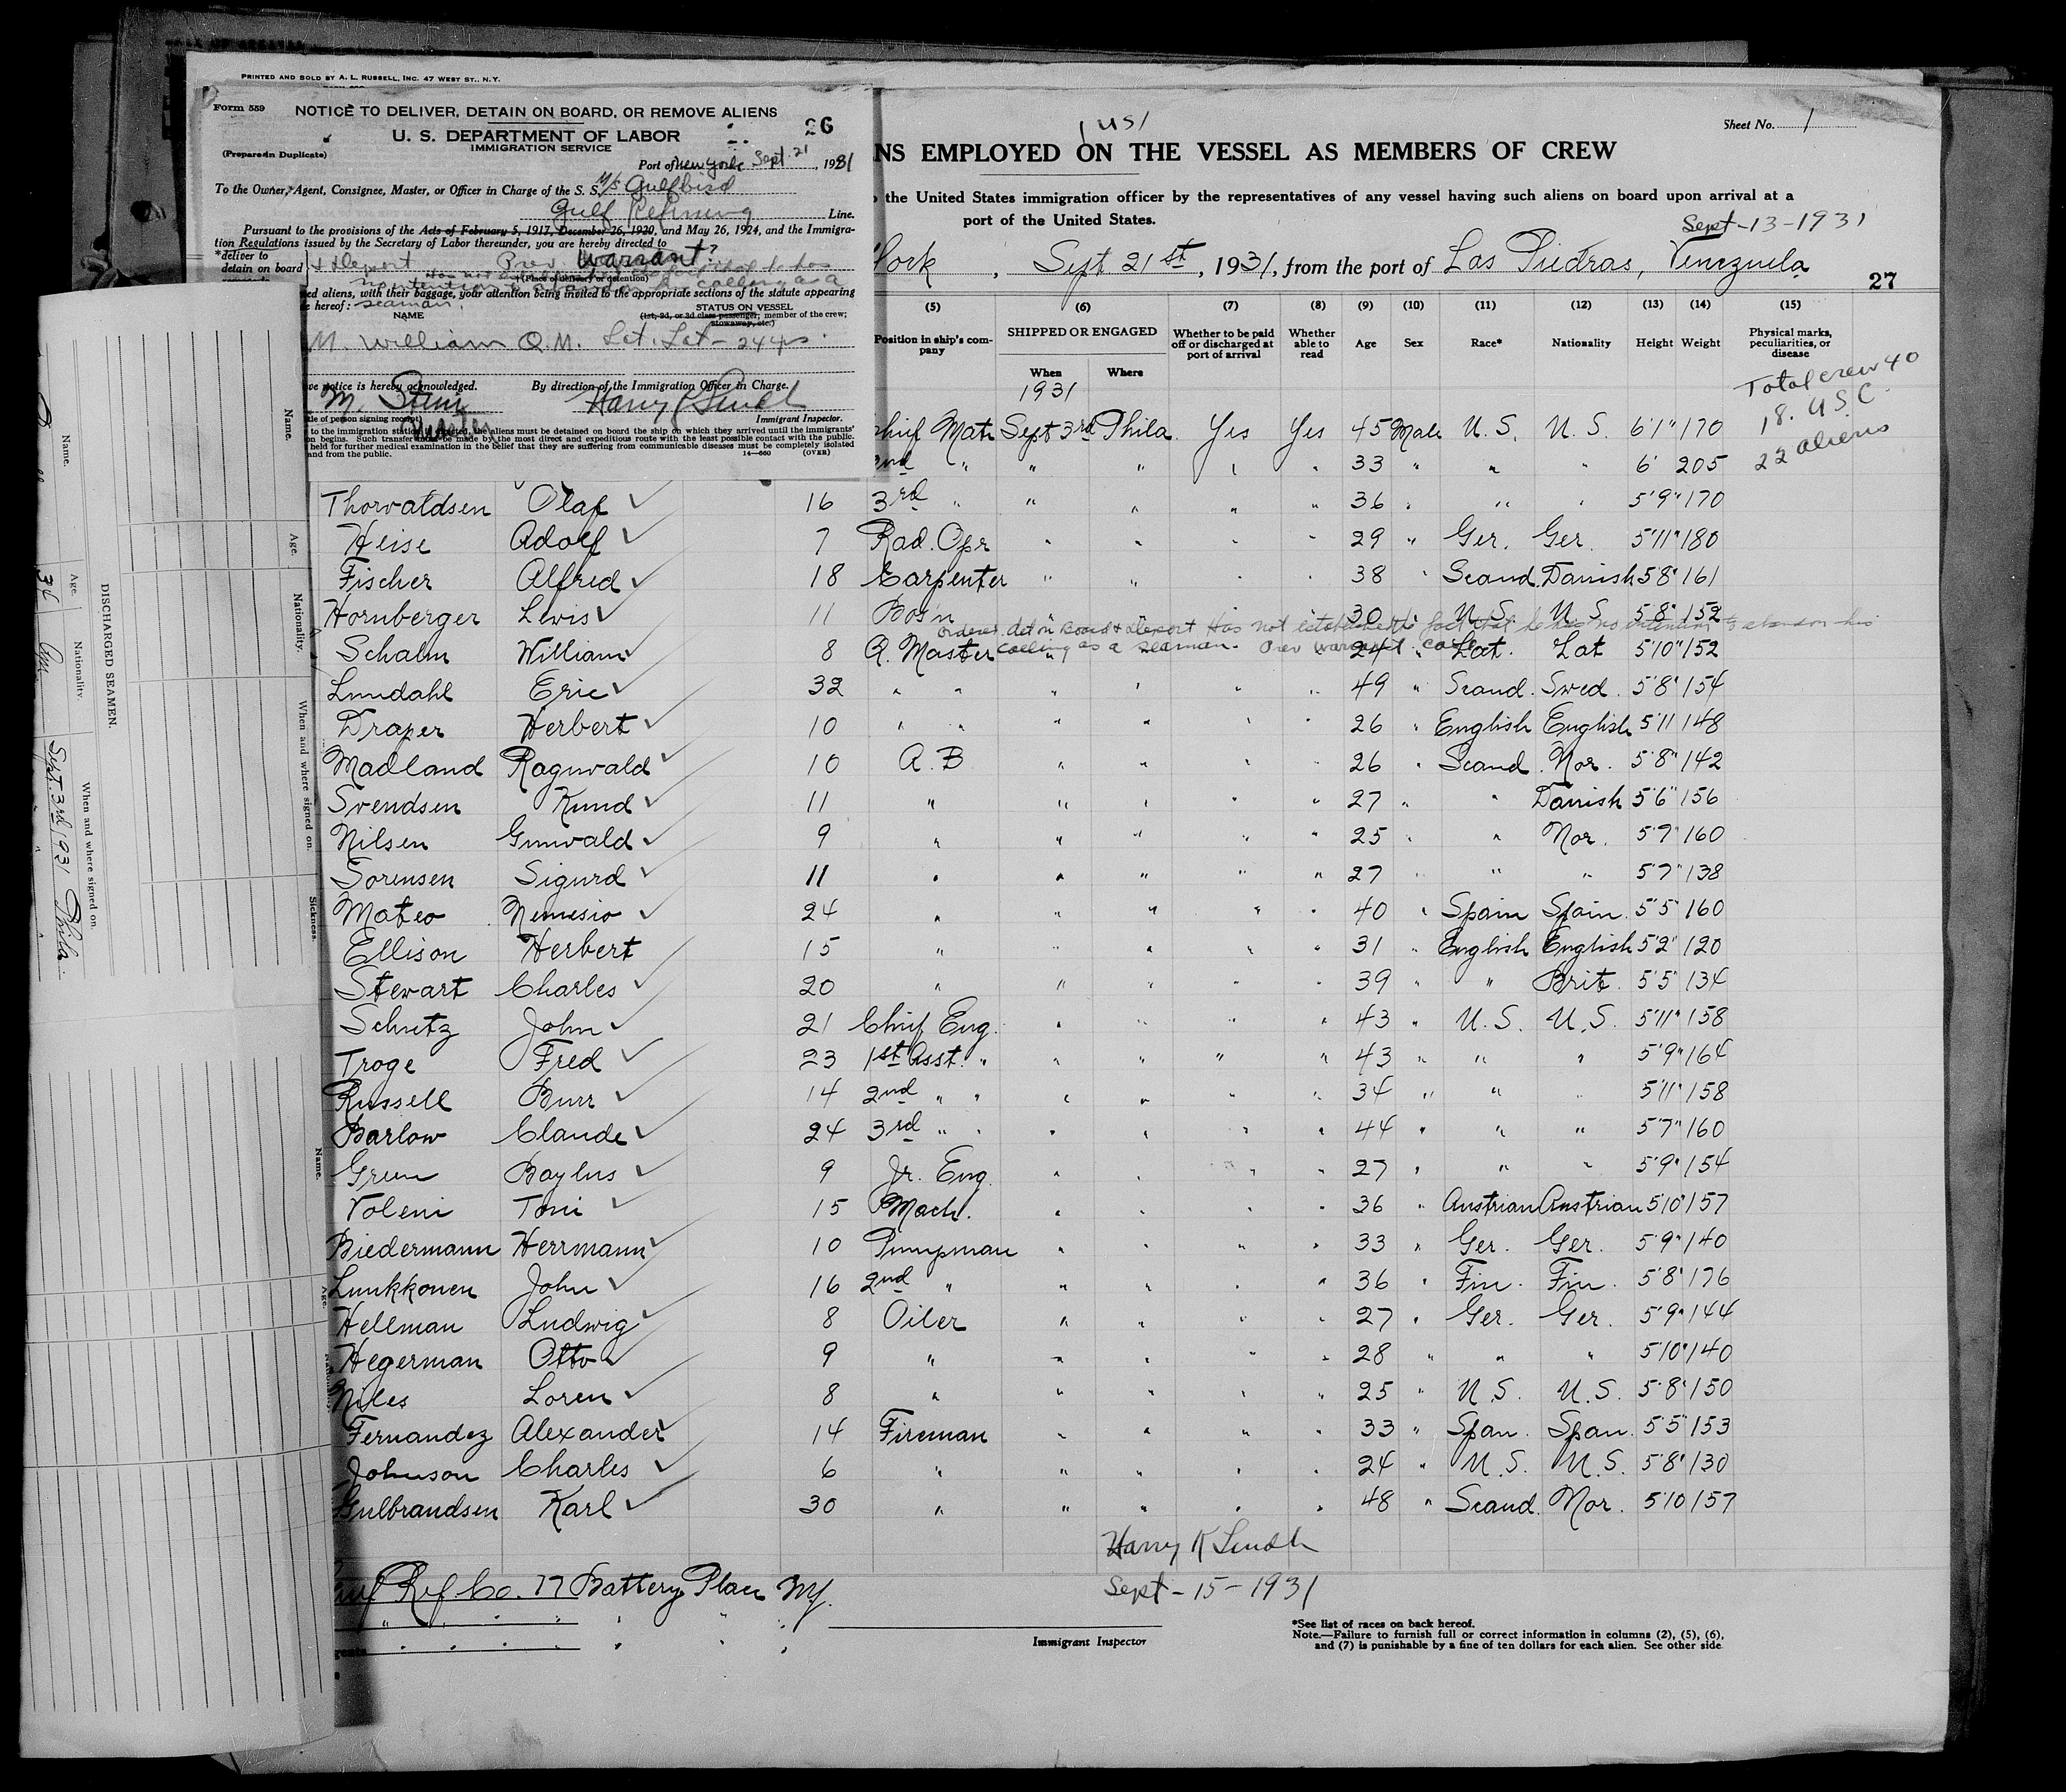 PRINTED AND SOLD BY A. L. RUSSELL, INC. 47 WEST ST., N.Y.
Form 559
NOTICE TO DELIVER, DETAIN ON BOARD, OR REMOVE ALIENS
26
U. S. DEPARTMENT OF LABOR
IMMIGRATION SERVICE
(Prepared in Duplicate)
Port of New York Sept. 21, 1931
To the Owner, Agent, Consignee, Master, or Officer in Charge of the S. S. M/S Gulfbird
Gulf Refining Line.
Pursuant to the provisions of the Acts of February 5, 1917, December 26, 1920, and May 26, 1924, and the Immigra-
tion Regulations issued by the Secretary of Labor thereunder, you are hereby directed to
*deliver to
detain on board & Deport Prev. Warrant?
(Place of detention)
no intention calling as a
ed aliens, with their baggage, your attention being invited to the appropriate sections of the statute appearing
e hereof: seaman.
NAME
STATUS ON VESSEL
(1st, 2d, or 3d class passenger; member of the crew;
stowaway, etc.)
M. William Q.M. Lat. Lat - 24 yrs.
ve notice is hereby acknowledged.
By direction of the Immigration Officer in Charge.
Immigrant Inspector.
tle of person signing receipt)
Master
to the immigration station if directed, the aliens must be detained on board the ship on which they arrived until the immigrants'
n begins. Such transfer must be made by the most direct and expeditious route with the least possible contact with the public.
held for further medical examination in the belief that they are suffering from communicable diseases must be completely isolated
and from the public.
14—660 (OVER)
1 US1
Sheet No. 1
NS EMPLOYED ON THE VESSEL AS MEMBERS OF CREW
the United States immigration officer by the representatives of any vessel having such aliens on board upon arrival at a
port of the United States.
Sept-13-1931
York, Sept 21st, 1931, from the port of Las Piedras, Venezuela
27
(5) (6) (7) (8) (9) (10) (11) (12) (13) (14) (15)
Position in ship's com-
pany
SHIPPED OR ENGAGED
When
Where
1931
Whether to be paid
off or discharged at
port of arrival
Whether
able to
read
Age
Sex
Race*
Nationality
Height
Weight
Physical marks,
peculiarities, or
disease
Total crew 40
18. U.S.C.
22 aliens
Chief Mate Sept 3rd Phila Yes Yes 45 Male U.S. U.S. 6'1" 170
2nd " " " " " 33 " " " 6' 205
Thorvaldsen Olaf ✓ 16 3rd " " " " " 36 " " " 5'9" 170
Heise Adolf ✓ 7 Rad. Opr " " " " 29 " Ger. Ger. 5'11" 180
Fischer Alfred ✓ 18 Carpenter " " " " 38 " Scand. Danish 5'8" 161
Hornberger Lewis ✓ 11 Bos'n " " " " 30 " U.S. U.S. 5'8" 152
Ordered det on Board & Deport Has not established the fact that he has no intention to abandon his
calling as a seaman. Prev warrant case
Schalm William ✓ 8 Q. Master " " " " 24 " Lat. Lat 5'10" 152
Lundahl Eric ✓ 32 " " " " " " 49 " Scand. Swed. 5'8" 154
Draper Herbert ✓ 10 " " " " " " 26 " English English 5'11 148
Madland Ragnvald ✓ 10 A.B " " " " 26 " Scand. Nor. 5'8" 142
Svendsen Knud ✓ 11 " " " " " 27 " " Danish 5'6" 156
Nilsen Gunvald ✓ 9 " " " " " 25 " " Nor. 5'7" 160
Sorensen Sigurd ✓ 11 " " " " " 27 " " " 5'7" 138
Mateo Nemesio ✓ 24 " " " " " 40 " Spain Spain 5'5" 160
Ellison Herbert 15 " " " " " 31 " English English 5'2" 120
Stewart Charles ✓ 20 " " " " " 39 " " Brit. 5'5" 134
Schutz John ✓ 21 Chief Eng. " " " " 43 " U.S. U.S. 5'11" 158
Troge Fred ✓ 23 1st Asst. " " " " " 43 " " " 5'9" 164
Russell Burr ✓ 14 2nd " " " " " " 34 " " " 5'11" 158
Barlow Claude ✓ 24 3rd " " " " " " 44 " " " 5'7" 160
Green Baylus ✓ 9 Jr. Eng. " " " " 27 " " " 5'9" 154
Voleni Toni ✓ 15 Mach. " " " " 36 " Austrian Austrian 5'10" 157
Biedermann Herrmann ✓ 10 Pumpman " " " " 33 " Ger. Ger. 5'9" 140
Lunkkonen John ✓ 16 2nd " " " " " 36 " Fin. Fin. 5'8" 176
Hellman Ludwig ✓ 8 Oiler " " " " 27 " Ger. Ger. 5'9" 144
Hegerman Otto ✓ 9 " " " " " 28 " " " 5'10" 140
Niles Loren ✓ 8 " " " " " 25 " U.S. U.S. 5'8" 150
Fernandez Alexander ✓ 14 Fireman " " " " 33 " Span. Span. 5'5" 153
Johnson Charles ✓ 6 " " " " " 24 " U.S. U.S. 5'8" 130
Gulbrandsen Karl ✓ 30 " " " " " 48 " Scand. Nor. 5'10 157
Harry R
Sept-15-1931
Ref Co. 17 Battery Place NY.
Immigrant Inspector
*See list of races on back hereof.
Note.—Failure to furnish full or correct information in columns (2), (5), (6),
and (7) is punishable by a fine of ten dollars for each alien. See other side
DISCHARGED SEAMEN.
Name.
Age.
Nationality.
When and where signed on.
36
Sept. 3rd 1931 Phila.
Name.
Age.
Nationality.
When and where signed on.
Sickness.
Name.
Age.